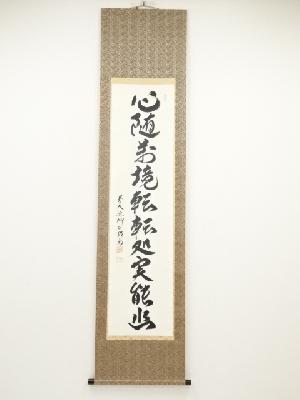 心随万境転転処実能幽